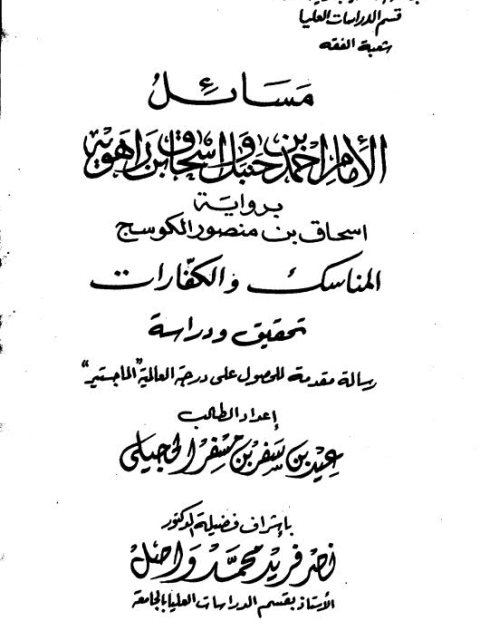 قسم الدراسات العليا
شعبة الفقه
مسائل
الإمام أحمد بن حنبل واسحاق بن راهويه
برواية
اسحاق بن منصور الكوسج
المناسك والكفارات
تحقيق ودراسة
رسالة مقدمة للحصول على درجة العالمية "الماجستير"
إعداد الطالب
عيد بن سفر بن مسفر الحجيلي
بإشراف فضيلة الدكتور
نصر فريد محمد واصل
الأستاذ بقسم الدراسات العليا بالجامعة